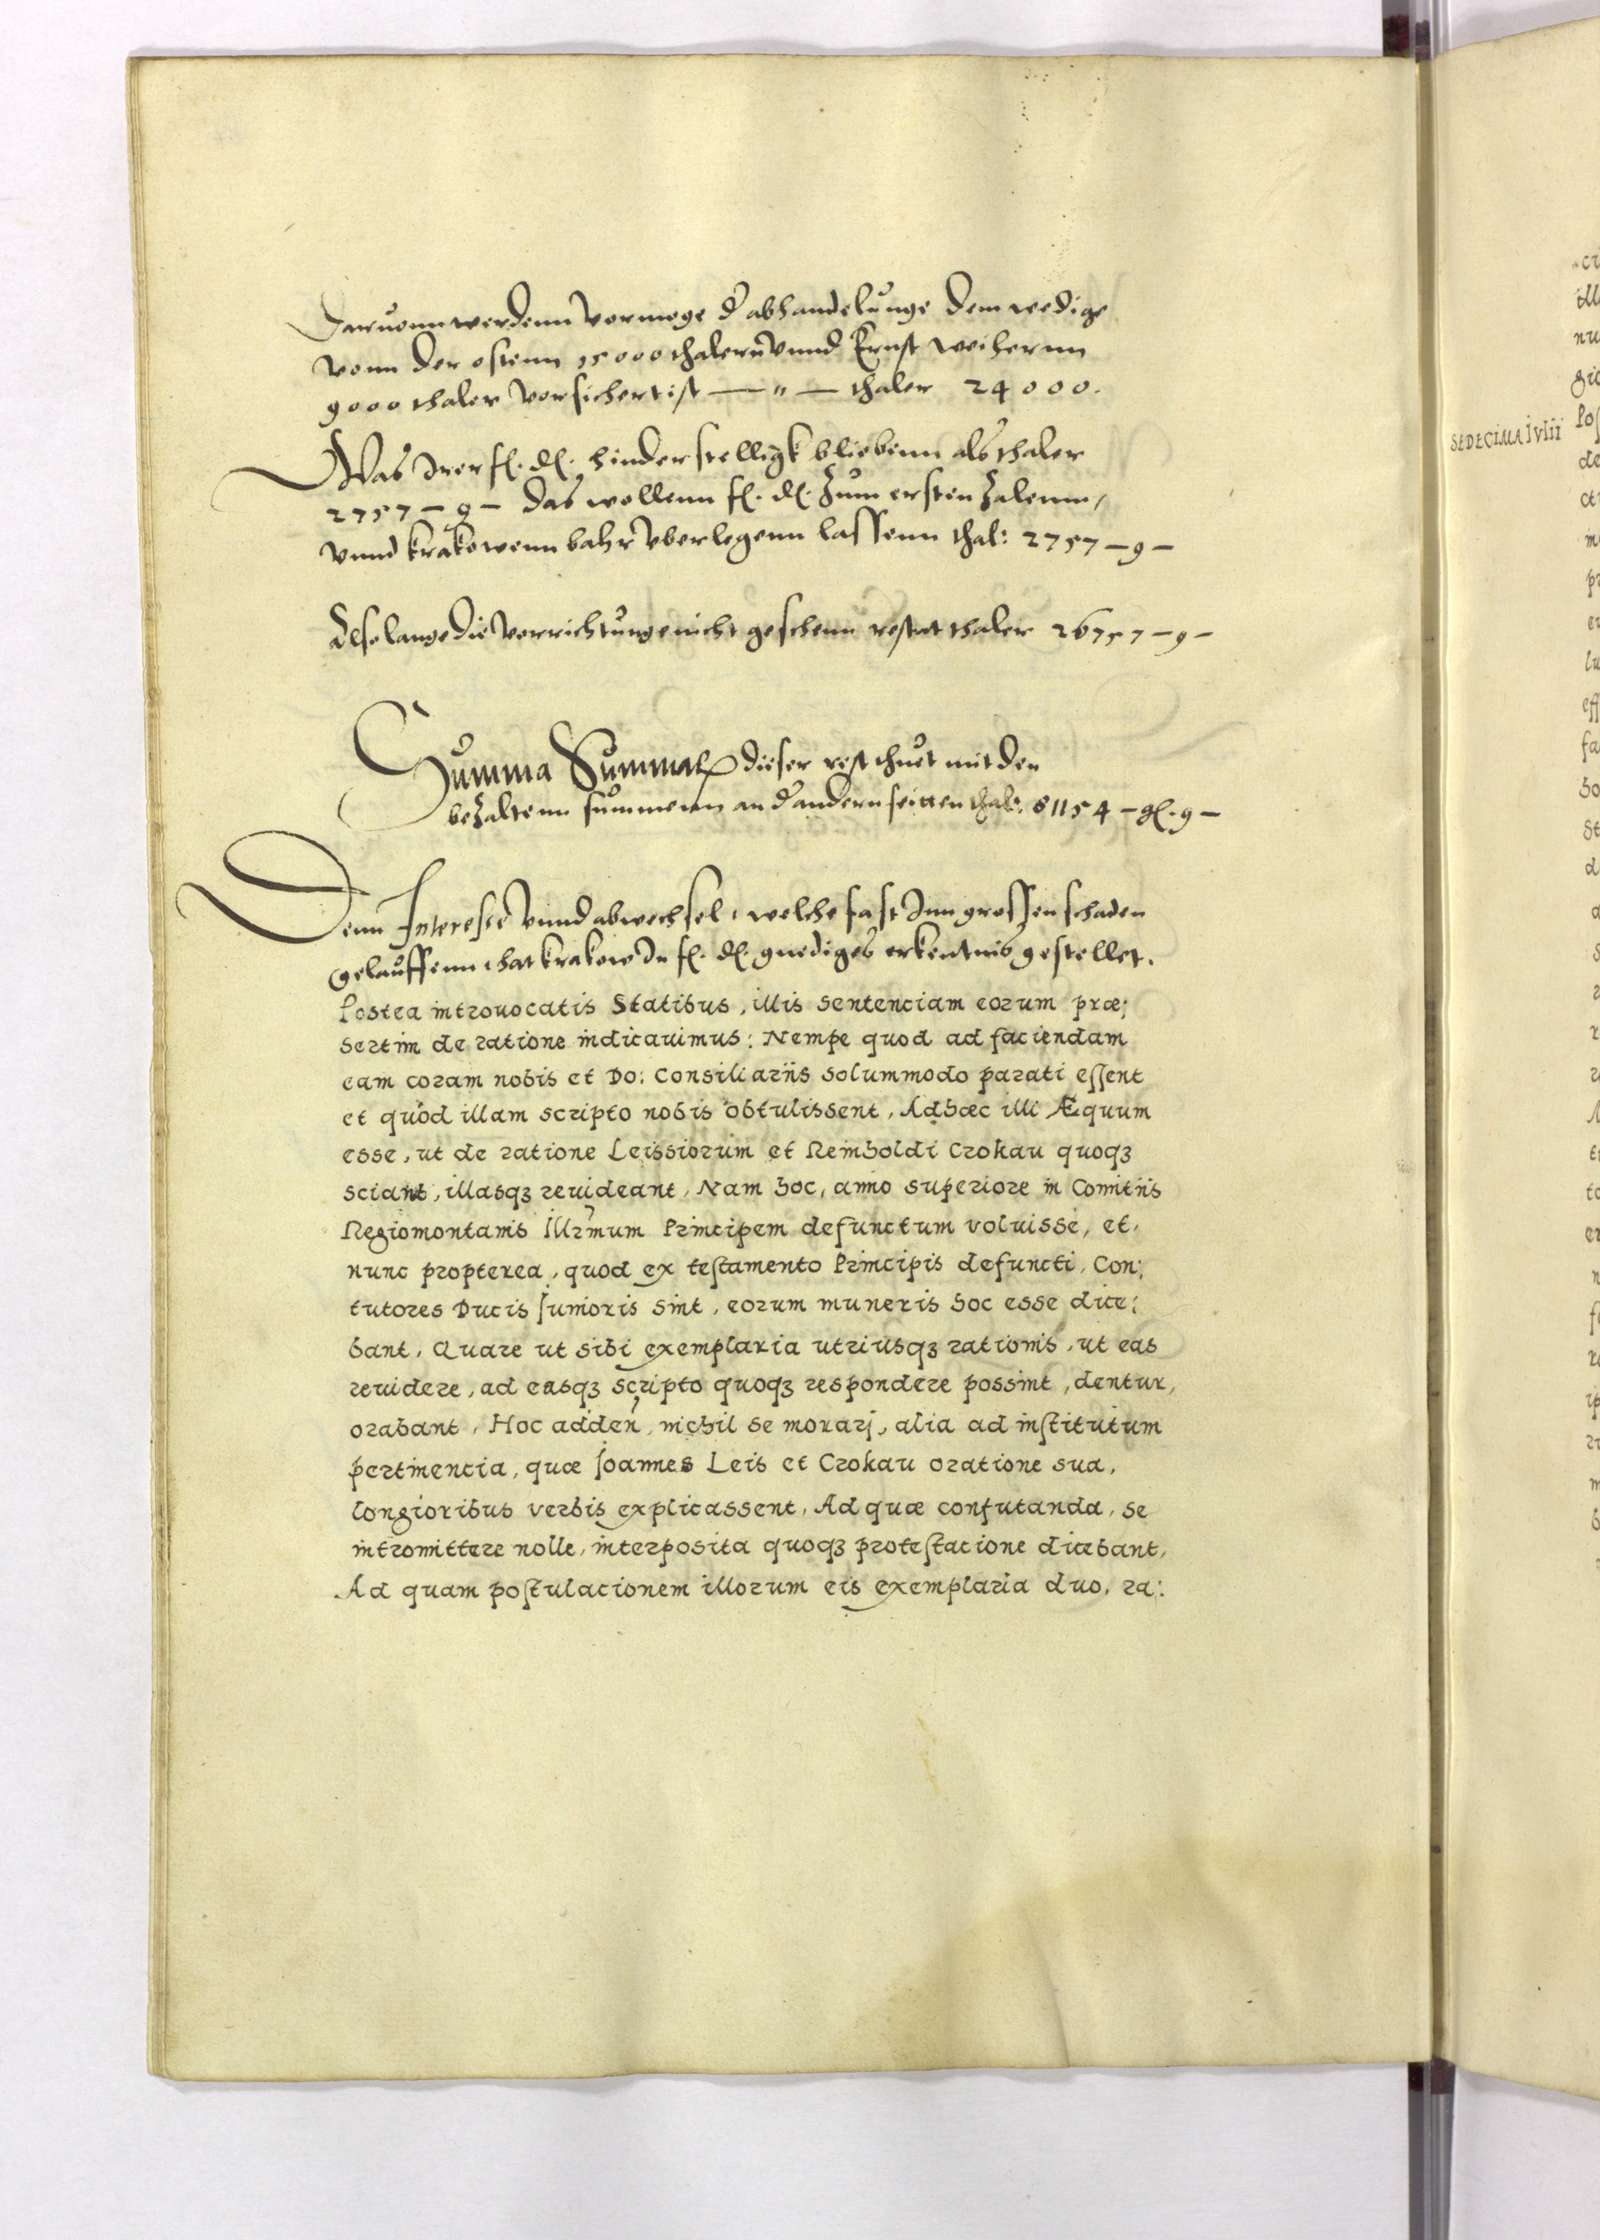 Daruonn werdenn vormoge d' abhandelunge dem wedige
vonn der ostenn 15000 thalern vnnd Ernst weihernn
9000 thaler vorsichert ist — " — thaler 24000.
Was Irer fl. dl. hinderstelligk bliebenn als thaler
2757 – 9 – das wollenn fl. dl. zum ersten zalenn,
vnnd krakowenn bahr vberlegenn lassenn thal: 2757 – 9 –
Also lange die vorrichtunge nicht geschenn restat thaler 26757 – 9 –
Summa Summar dieser rest thuet mit den
bezaltenn summenn an d' andern seitten thal: 81154 – gl. 9 –
Denn Interesse vnnd abwechsel, welche fast Inn grossen schaden
gelauffenn, hat krakow In fl. dl. gnediges erkentnis gestellet.
Postea introuocatis Statibus, illis sentenciam eorum præ;
sertim de ratione indicauimus: Nempe quod ad faciendam
eam coram nobis et Do: Consiliariis solummodo parati essent
et quòd illam scripto nobis obtulissent, Ad hæc illi Æquum
esse, ut de ratione Leissiorum et Remholdi Crokau quoqʒ
sciant, illasqʒ reuideant, Nam hoc, anno superiore in Comitiis
Regiomontanis Illrmum Principem defunctum voluisse, et,
nunc propterea, quod ex testamento Principis defuncti, Con;
tutores Ducis Junioris sint, eorum muneris hoc esse dice;
bant, Quare ut sibi exemplaria utriusqʒ rationis, ut eas
reuidere, ad easqʒ scripto quoqʒ respondere possint, dentur,
orabant, Hoc adden, nichil se morarj, alia ad institutum
pertinencia, quæ Joannes Leis et Crokau oratione sua,
longioribus verbis explicassent, Ad quæ confutanda, se
intromittere nolle, interposita quoqʒ protestacione dicebant,
Ad quam postulacionem illorum eis exemplaria duo, ra:
SEDECIMA IVLII